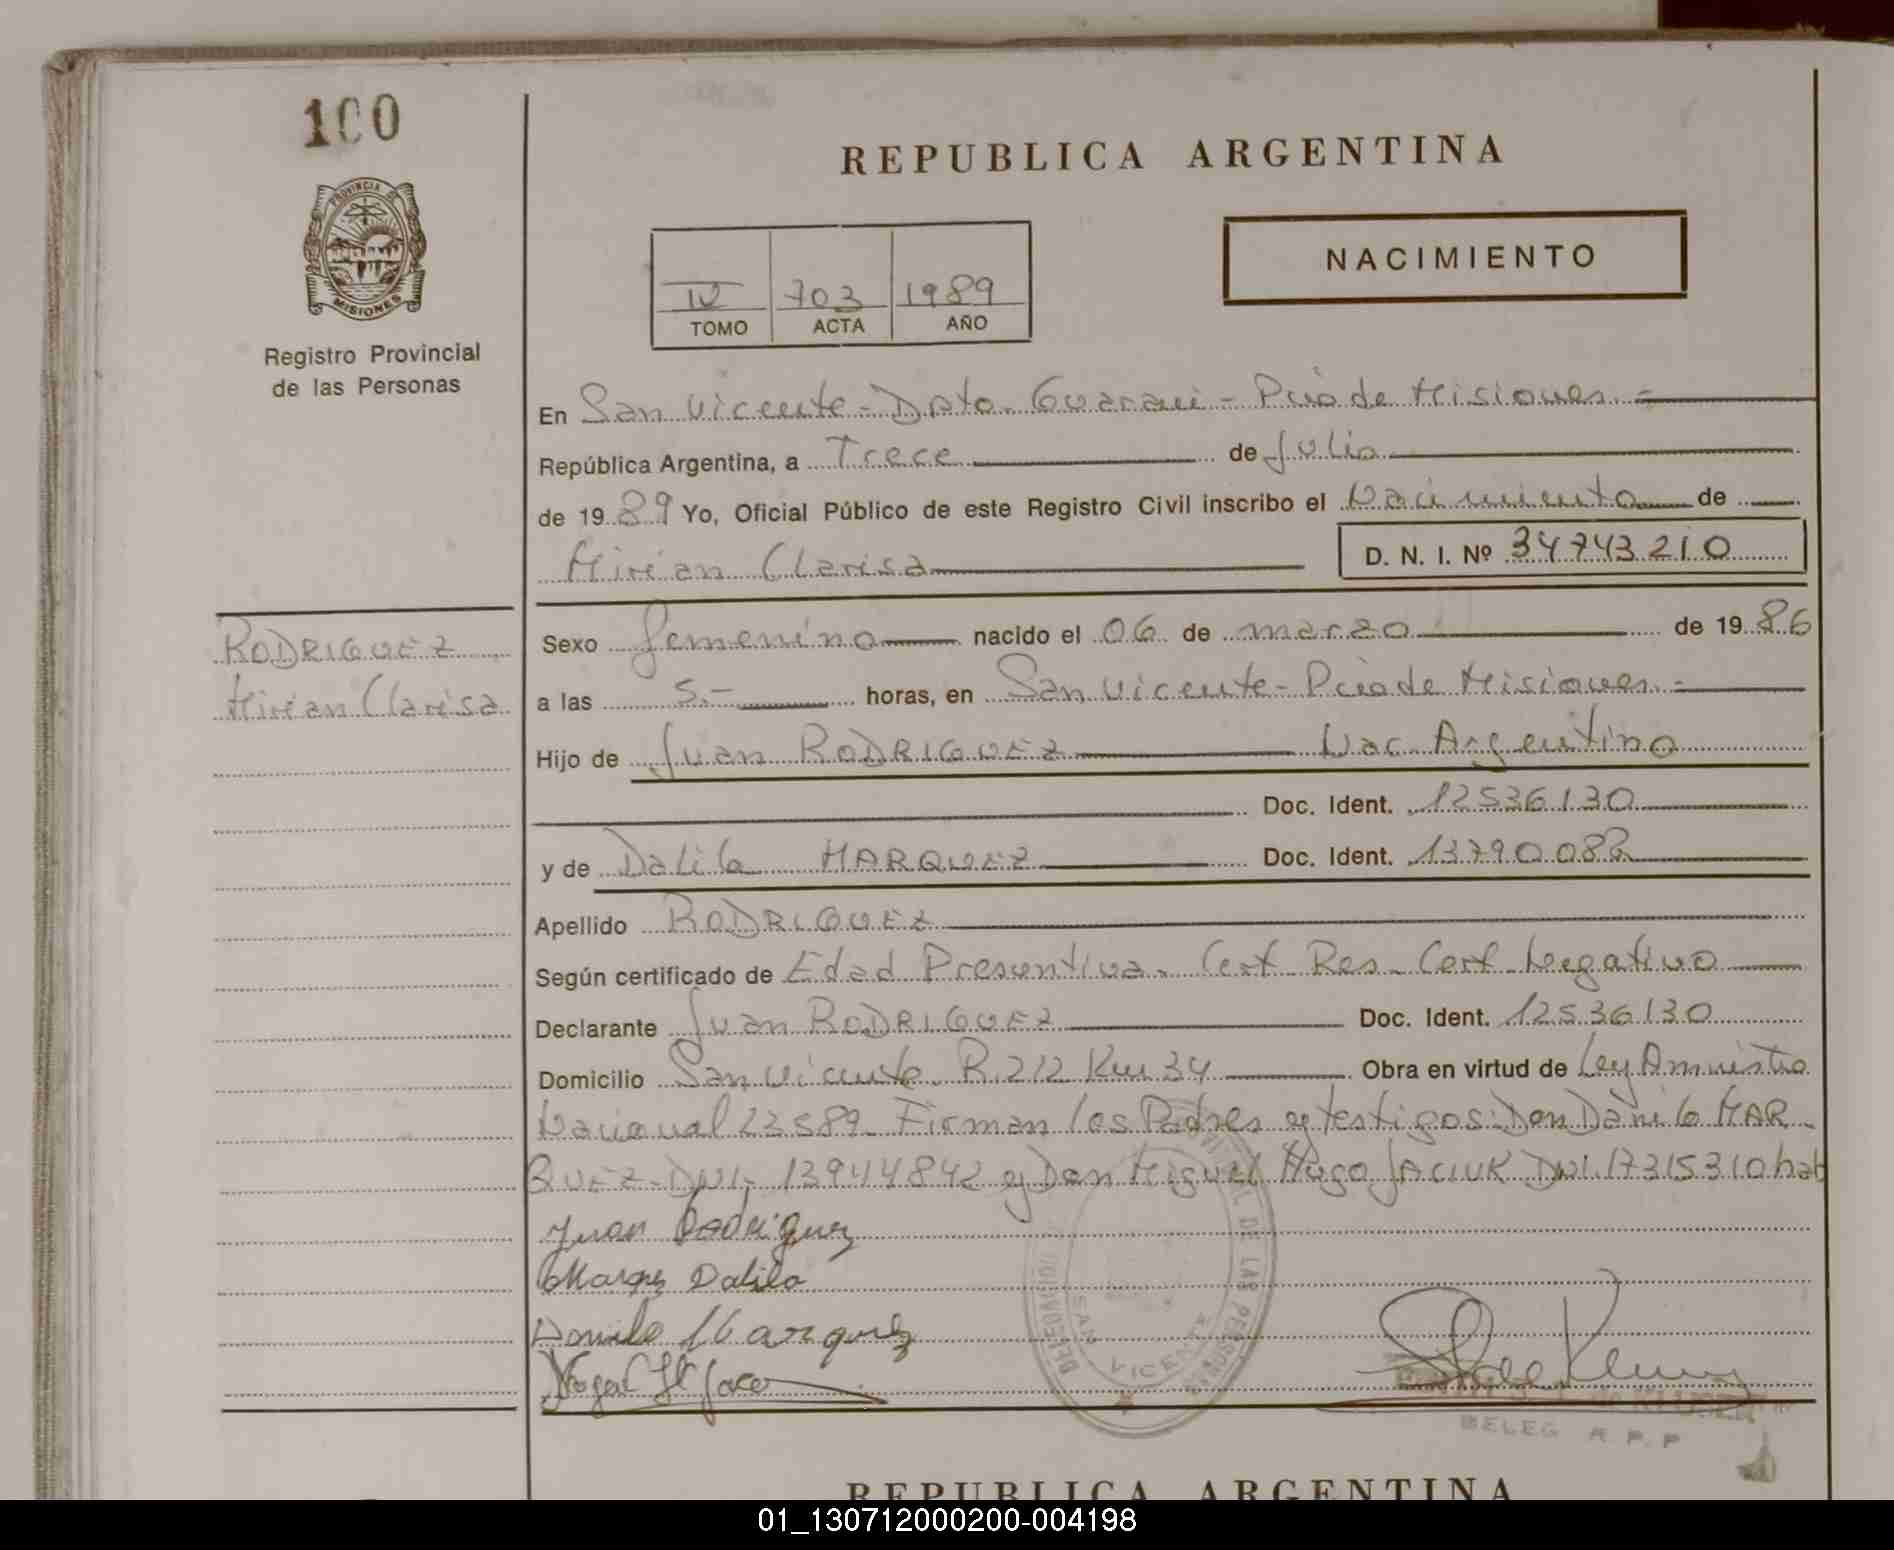 100
REPUBLICA ARGENTINA
PROVINCIA DE
MISIONES
NACIMIENTO
IV 703 1989
TOMO ACTA AÑO
Registro Provincial
de las Personas
En San Vicente - Dpto. Guarani - Pcia de Misiones. -
República Argentina, a Trece de Julio
de 1989 Yo, Oficial Público de este Registro Civil inscribo el Nacimiento de
Mirian Clarisa D. N. I. Nº 34743210
RODRIGUEZ
Mirian Clarisa
Sexo femenino nacido el 06 de marzo de 1986
a las 5.- horas, en San Vicente - Pcia de Misiones. -
Hijo de Juan RODRIGUEZ Nac. Argentino
Doc. Ident. 12536130
y de Dalila MARQUEZ Doc. Ident. 13790088
Apellido RODRIGUEZ
Según certificado de Edad Presuntiva. Cert. Res. Cert. Negativo
Declarante Juan RODRIGUEZ Doc. Ident. 12536130
Domicilio San Vicente R. 212 Km 34 Obra en virtud de Ley Amnistia
Nacional 23589. Firman los Padres y testigos: Don Danilo MAR-
QUEZ - DNI - 13944842 y Don Miguel Hugo JACIUK DNI. 17315310 hab
Juan Rodriguez
Marqez Dalila
Danilo Marquez
DELEGACION
DE LAS PERSONAS
SAN VICENTE
BELEG R.P.P
REPUBLICA ARGENTINA
01_130712000200-004198